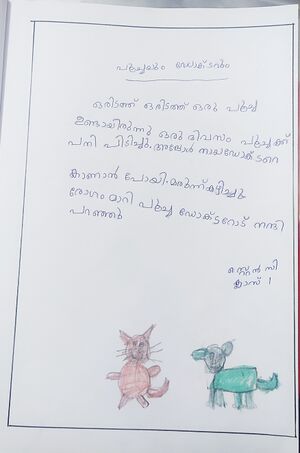 പൂച്ചയും ഡോക്ടറും
ഒരിടത്ത് ഒരിടത്ത് ഒരു പൂച്ച
ഉണ്ടായിരുന്നു ഒരു ദിവസം പൂച്ചക്ക്
പനി പിടിച്ചു. അപ്പോൾ നായഡോക്ടറെ
കാണാൻ പോയി. മരുന്ന് കുടിച്ചു.
രോഗം മാറി പൂച്ച ഡോക്ടറോട് നന്ദി
പറഞ്ഞു
സി
ക്ലാസ് 1